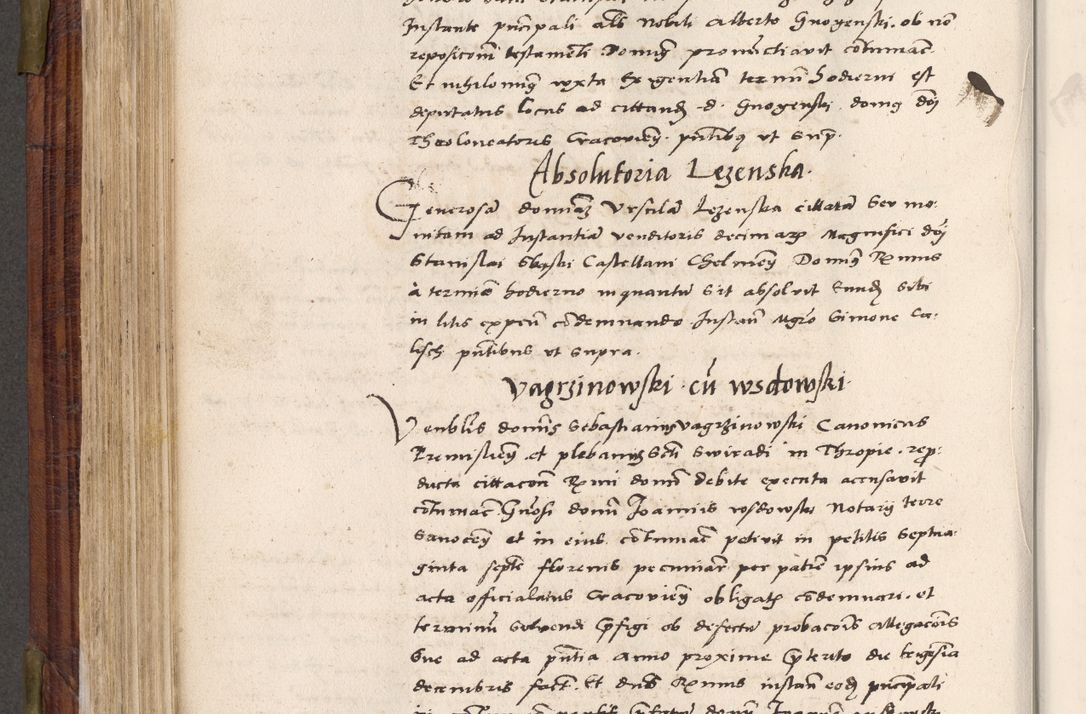 Instante principali alias Nobili Alberto Gnogenski ob non
reposicionem testamenti Dominus pronunctiavit contumacem
Et nihilominus iuxta Exigentiam termini hodierni est
deputatus locus ad cittandum d. Gnogenski domus domini
Theoloneatoris Cracoviensis presentibus ut supra
Absolutoria Lezenska
Generosam dominam Ursulam Lezenska cittatam Ser mo-
nitam ad Instantiam venditoris decimarum Magnifici domini
Stanislai Castellani Chelmensis Dominus Rmus
a termino hodierno inquantum Sit absolvit Eundem Sibi
in litis expensis condemnando Instante Magistro Simone Ca-
lisch presentibus ut supra
Vagrzinowski cum wsdowski
Venerabilis dominus Sebastianus Vagrzinowski Canonicus
Premisliensis et plebanus Sancti Swiradi in Thropie repro-
ducta cittacione Rmi domini debite executa accusavit
contumaciam Generosi domini Joannis wsdowski Notarii terre
Sanocensis et in eius contumaciam petivit in petitis Septua-
ginta septem florenis pecuniarum per partem ipsius ad
acta officialatus Cracoviensis obligatis condemnari et
terminum Solvendi prefigi ob defectum probacionis allegacionis
Sue ad acta presentia anno proxime preterito die trigesima
decembris factam Et dominus Rmus instante eodem principali